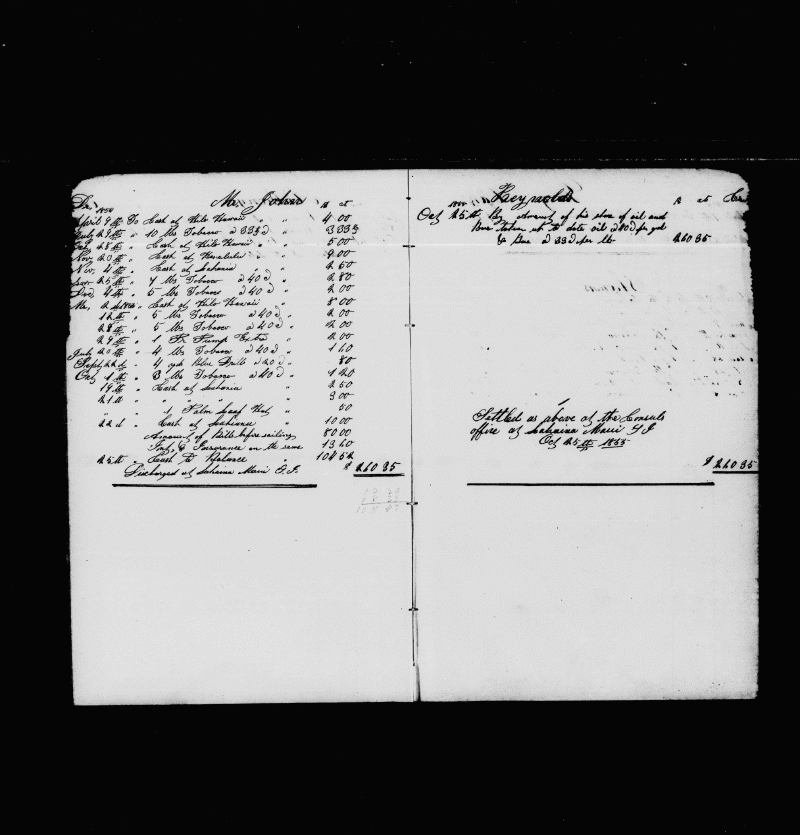 Dr. Mr. John $ ct
1854
April 9th To Cash at Hilo Hawaii " 4 00
July 29th " 10 lbs Tobacco a 33⅓ " 3 33⅓
" Cash at Hilo Hawaii " 5 00
Nov. 20th " Cash at Honolulu " 9 00
Nov. 4th " Cash at Lahaina " 2 50
25th " 7 lbs Tobacco a 40 c " 2 80
Dec. 4th " 5 lbs Tobacco a 40 c " 2 00
Cash at Hilo Hawaii " 8 00
12th " 5 lbs Tobacco a 40 c " 2 00
28th " 5 lbs Tobacco a 40 c " 2 00
29th " 1 Pr Pump Extra " 2 00
July 20th " 4 lbs Tobacco a 40 c " 1 60
Sept 22d " 4 yds Blue Drill a 20 c " 80
Oct 1th " 3 lbs Tobacco a 40 c " 1 20
19th " Cash at Lahaina " 2 50
21st " " " " 3 00
" " 1 Palm Leaf Hat " 50
22d " Cash at Lahaina " 10 00
Amount of Bills before sailing 80 00
Int. & Insurance on the same 13 60
25th " Cash To Balance " 104 52
Discharged at Lahaina Maui S.I. $ 260 35
Reynolds $ ct Cr
Oct 25th By Amount of his share of oil and
Bone taken up to date oil a 40 c per gal
& Bone a 33 c per lb 260 35
Thomas
Settled as above at the Consuls
office at Lahaina Maui S I
Oct 25th 1855
$ 260 35